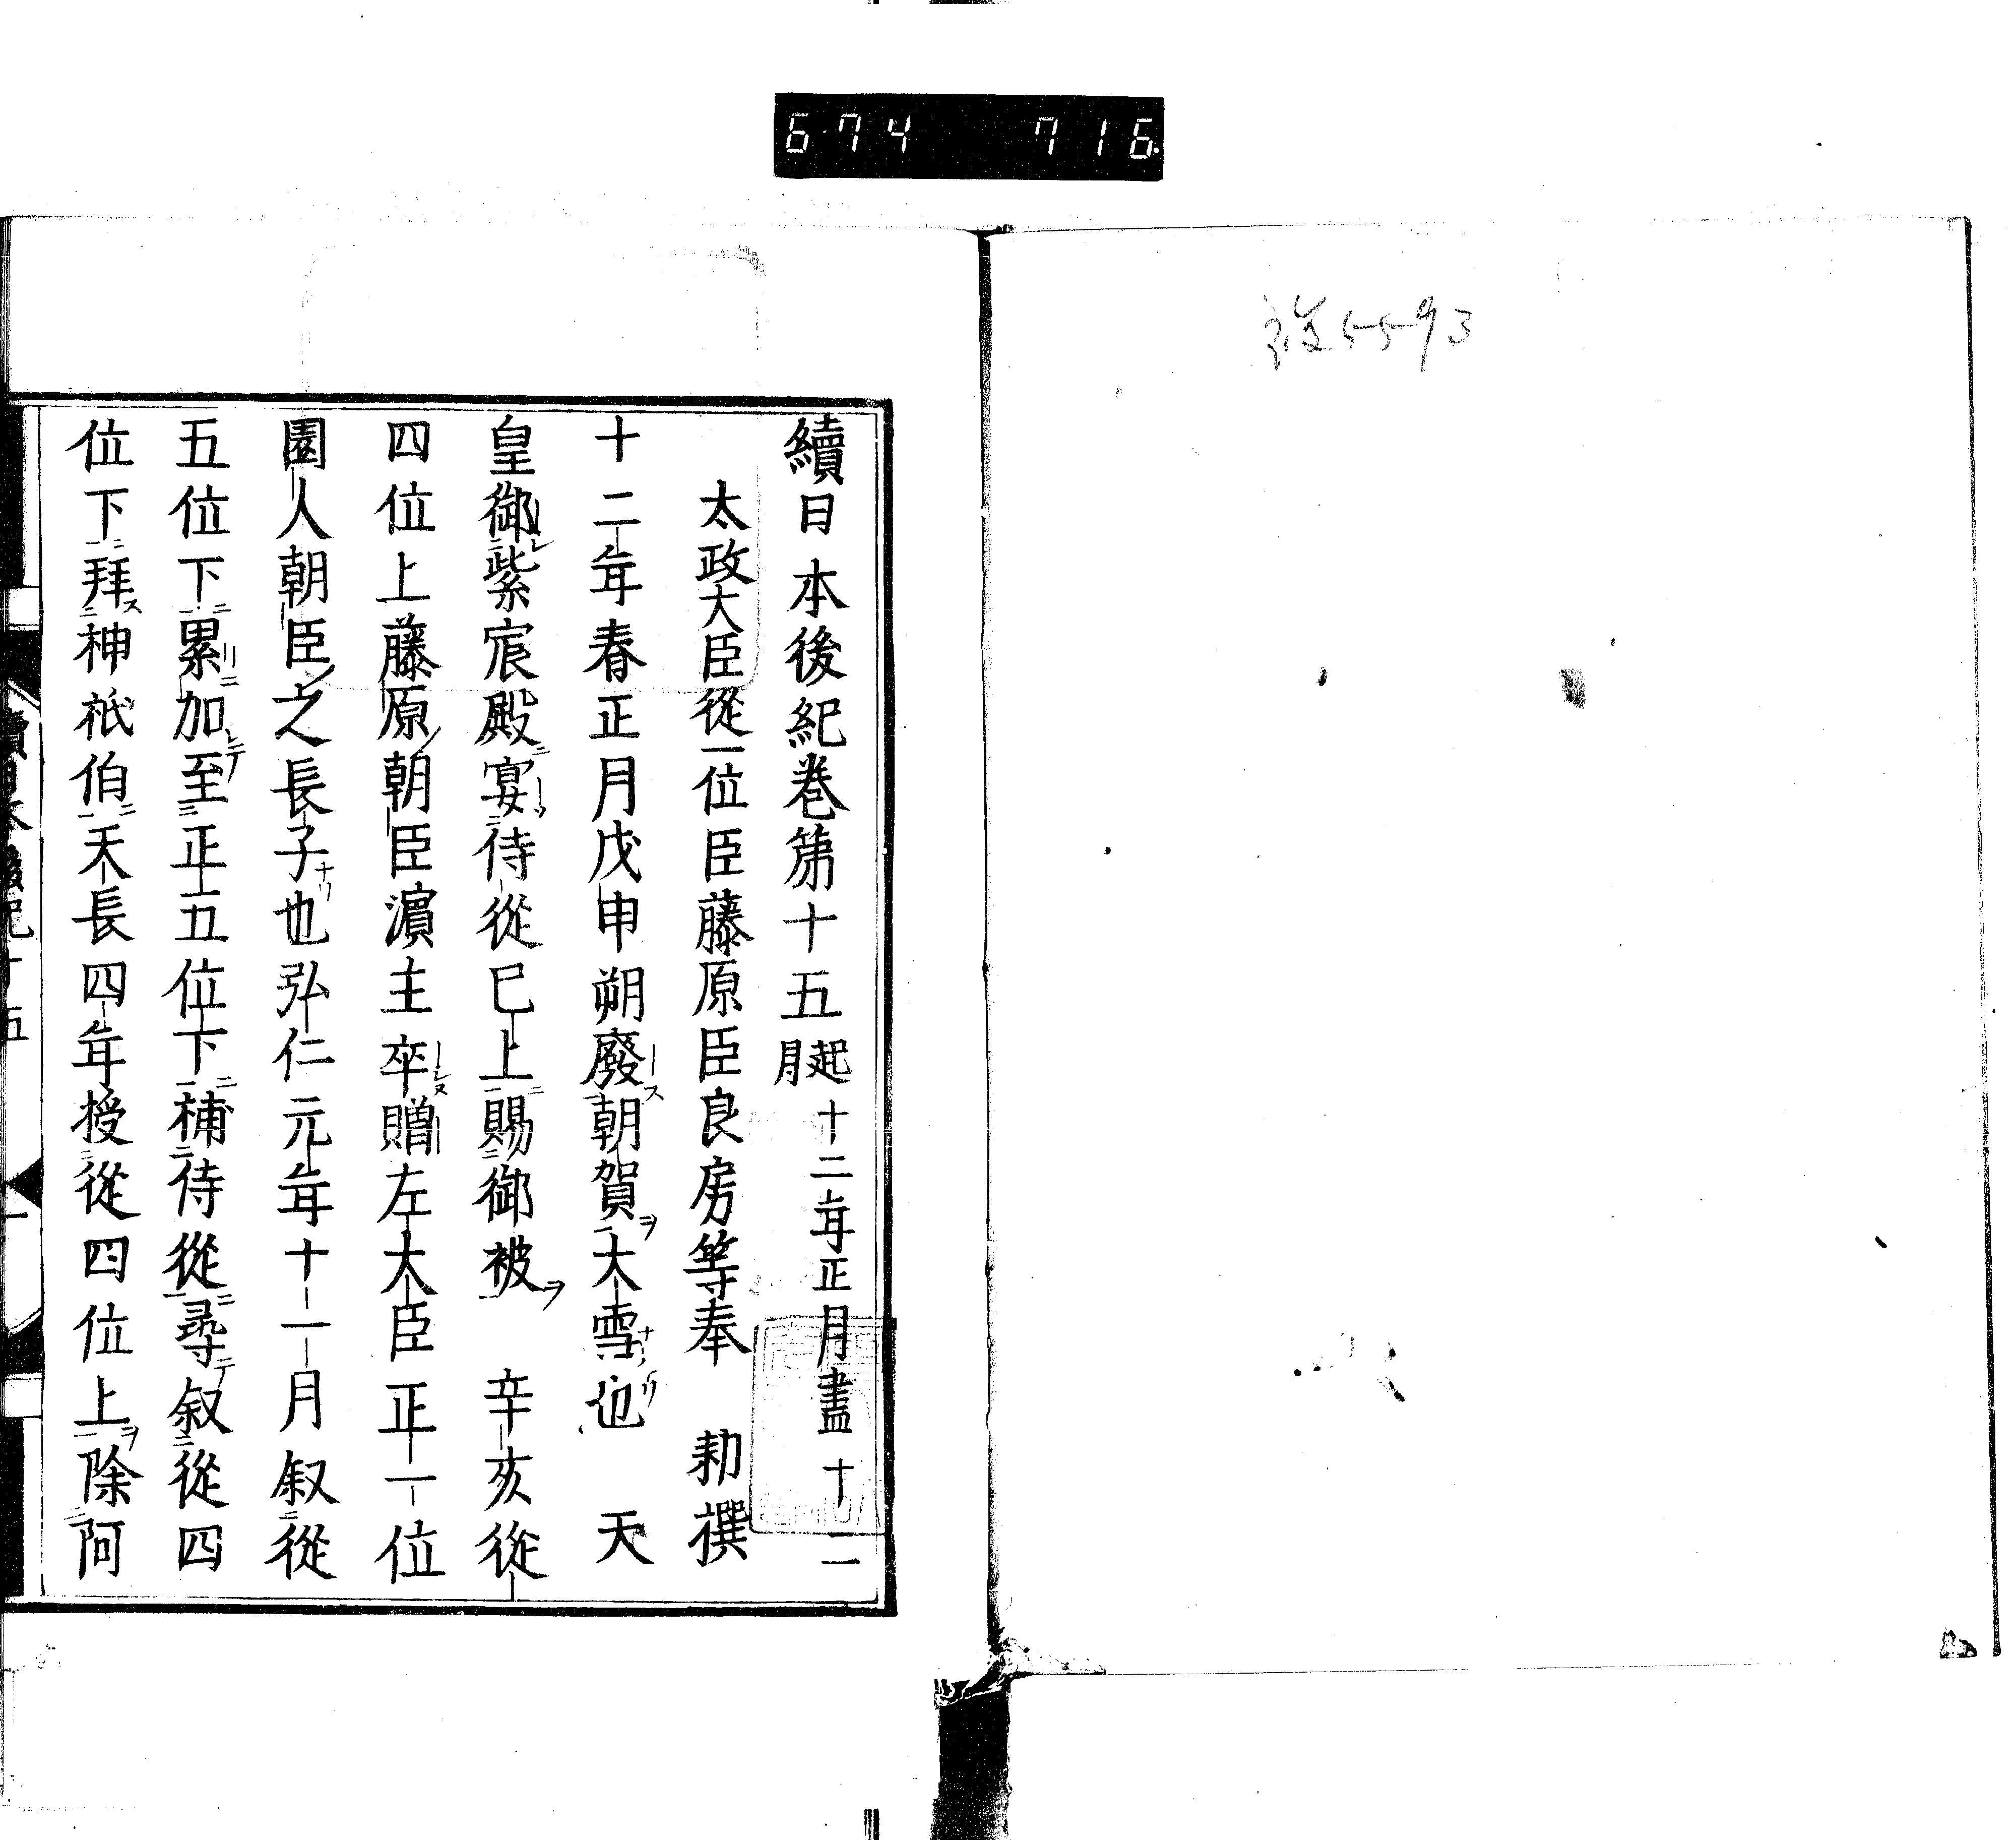 674 716
5593
續日本後紀卷第十五 起十二年正月盡十二月
太政大臣從一位臣藤原臣良房等奉 勅撰
十二年春正月戊申朔廢朝賀大雪也 天
皇御紫宸殿宴侍從已上賜御被 辛亥從
四位上藤原朝臣濱主卒贈左大臣正一位
園人朝臣之長子也弘仁元年十一月叙從
五位下累加至正五位下補侍從尋叙從四
位下拜神祇伯天長四年授從四位上除阿